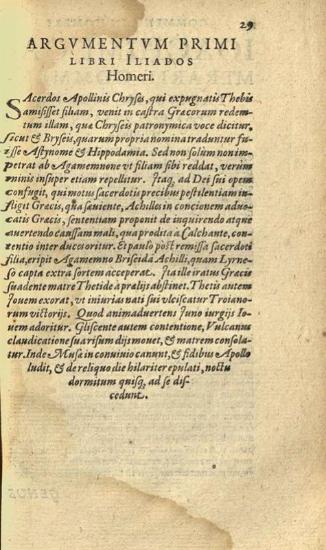 29
ARGVMENTVM PRIMI
LIBRI ILIADOS
Homeri.
SAcerdos Apollinis Chryses, qui expugnatis Thebis
amisisset filiam, venit in castra Græcorum redem-
tum illam, quæ Chryseis patronymica voce dicitur,
sicut & Bryseis, quarum propria nomina traduntur fu-
isse Astynome & Hippodamia. Sed non solùm non im-
petrat ab Agamemnone vt filiam sibi reddat, verùm
minis insuper etiam repellitur. Itaq, ad Dei sui opem
confugit, qui motus sacerdotis precibus pestilentiam in-
fligit Græcis, qua sæuiente, Achilles in concionem aduo-
catis Græcis, sententiam proponit de inquirendo atque
auertendo caussam mali, qua prodita à Calchante, con-
tentio inter duces oritur. Et paulò post remissa sacerdoti
filia, eripit Agamemno Briseida Achilli, quam Lyrne-
so capta extra sortem acceperat. Ita ille iratus Græcis
suadente matre Thetide à prælijs abstinet. Thetis autem
Iouem exorat, vt iniurias nati sui vlciscatur Troiano-
rum victorijs. Quod animaduertens Iuno iurgijs Io-
uem adoritur. Gliscente autem contentione, Vulcanus
claudicatione sua risum dijs mouet, & matrem consola-
tur. Inde Musæ in conuiuio canunt, & fidibus Apollo
ludit, & de reliquo die hilariter epulati, noctu
dormitum quisq, ad se dis-
cedunt.